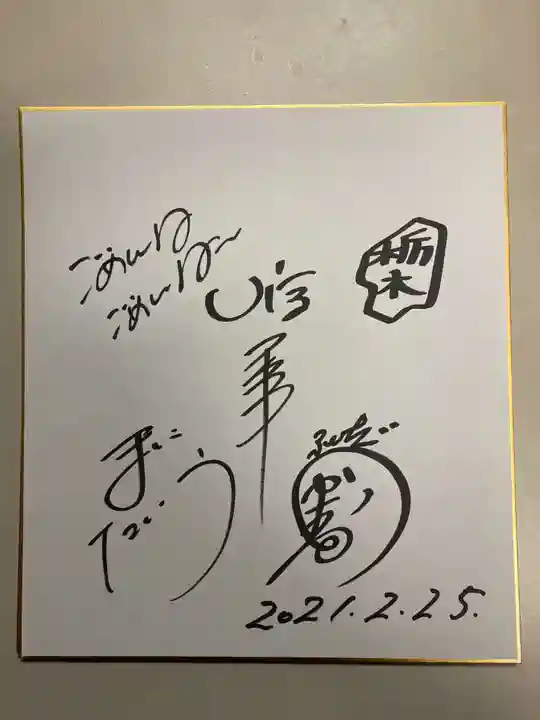 ごめんね
ごめんねー
U字
栃木
ふくだ
2021.2.25.